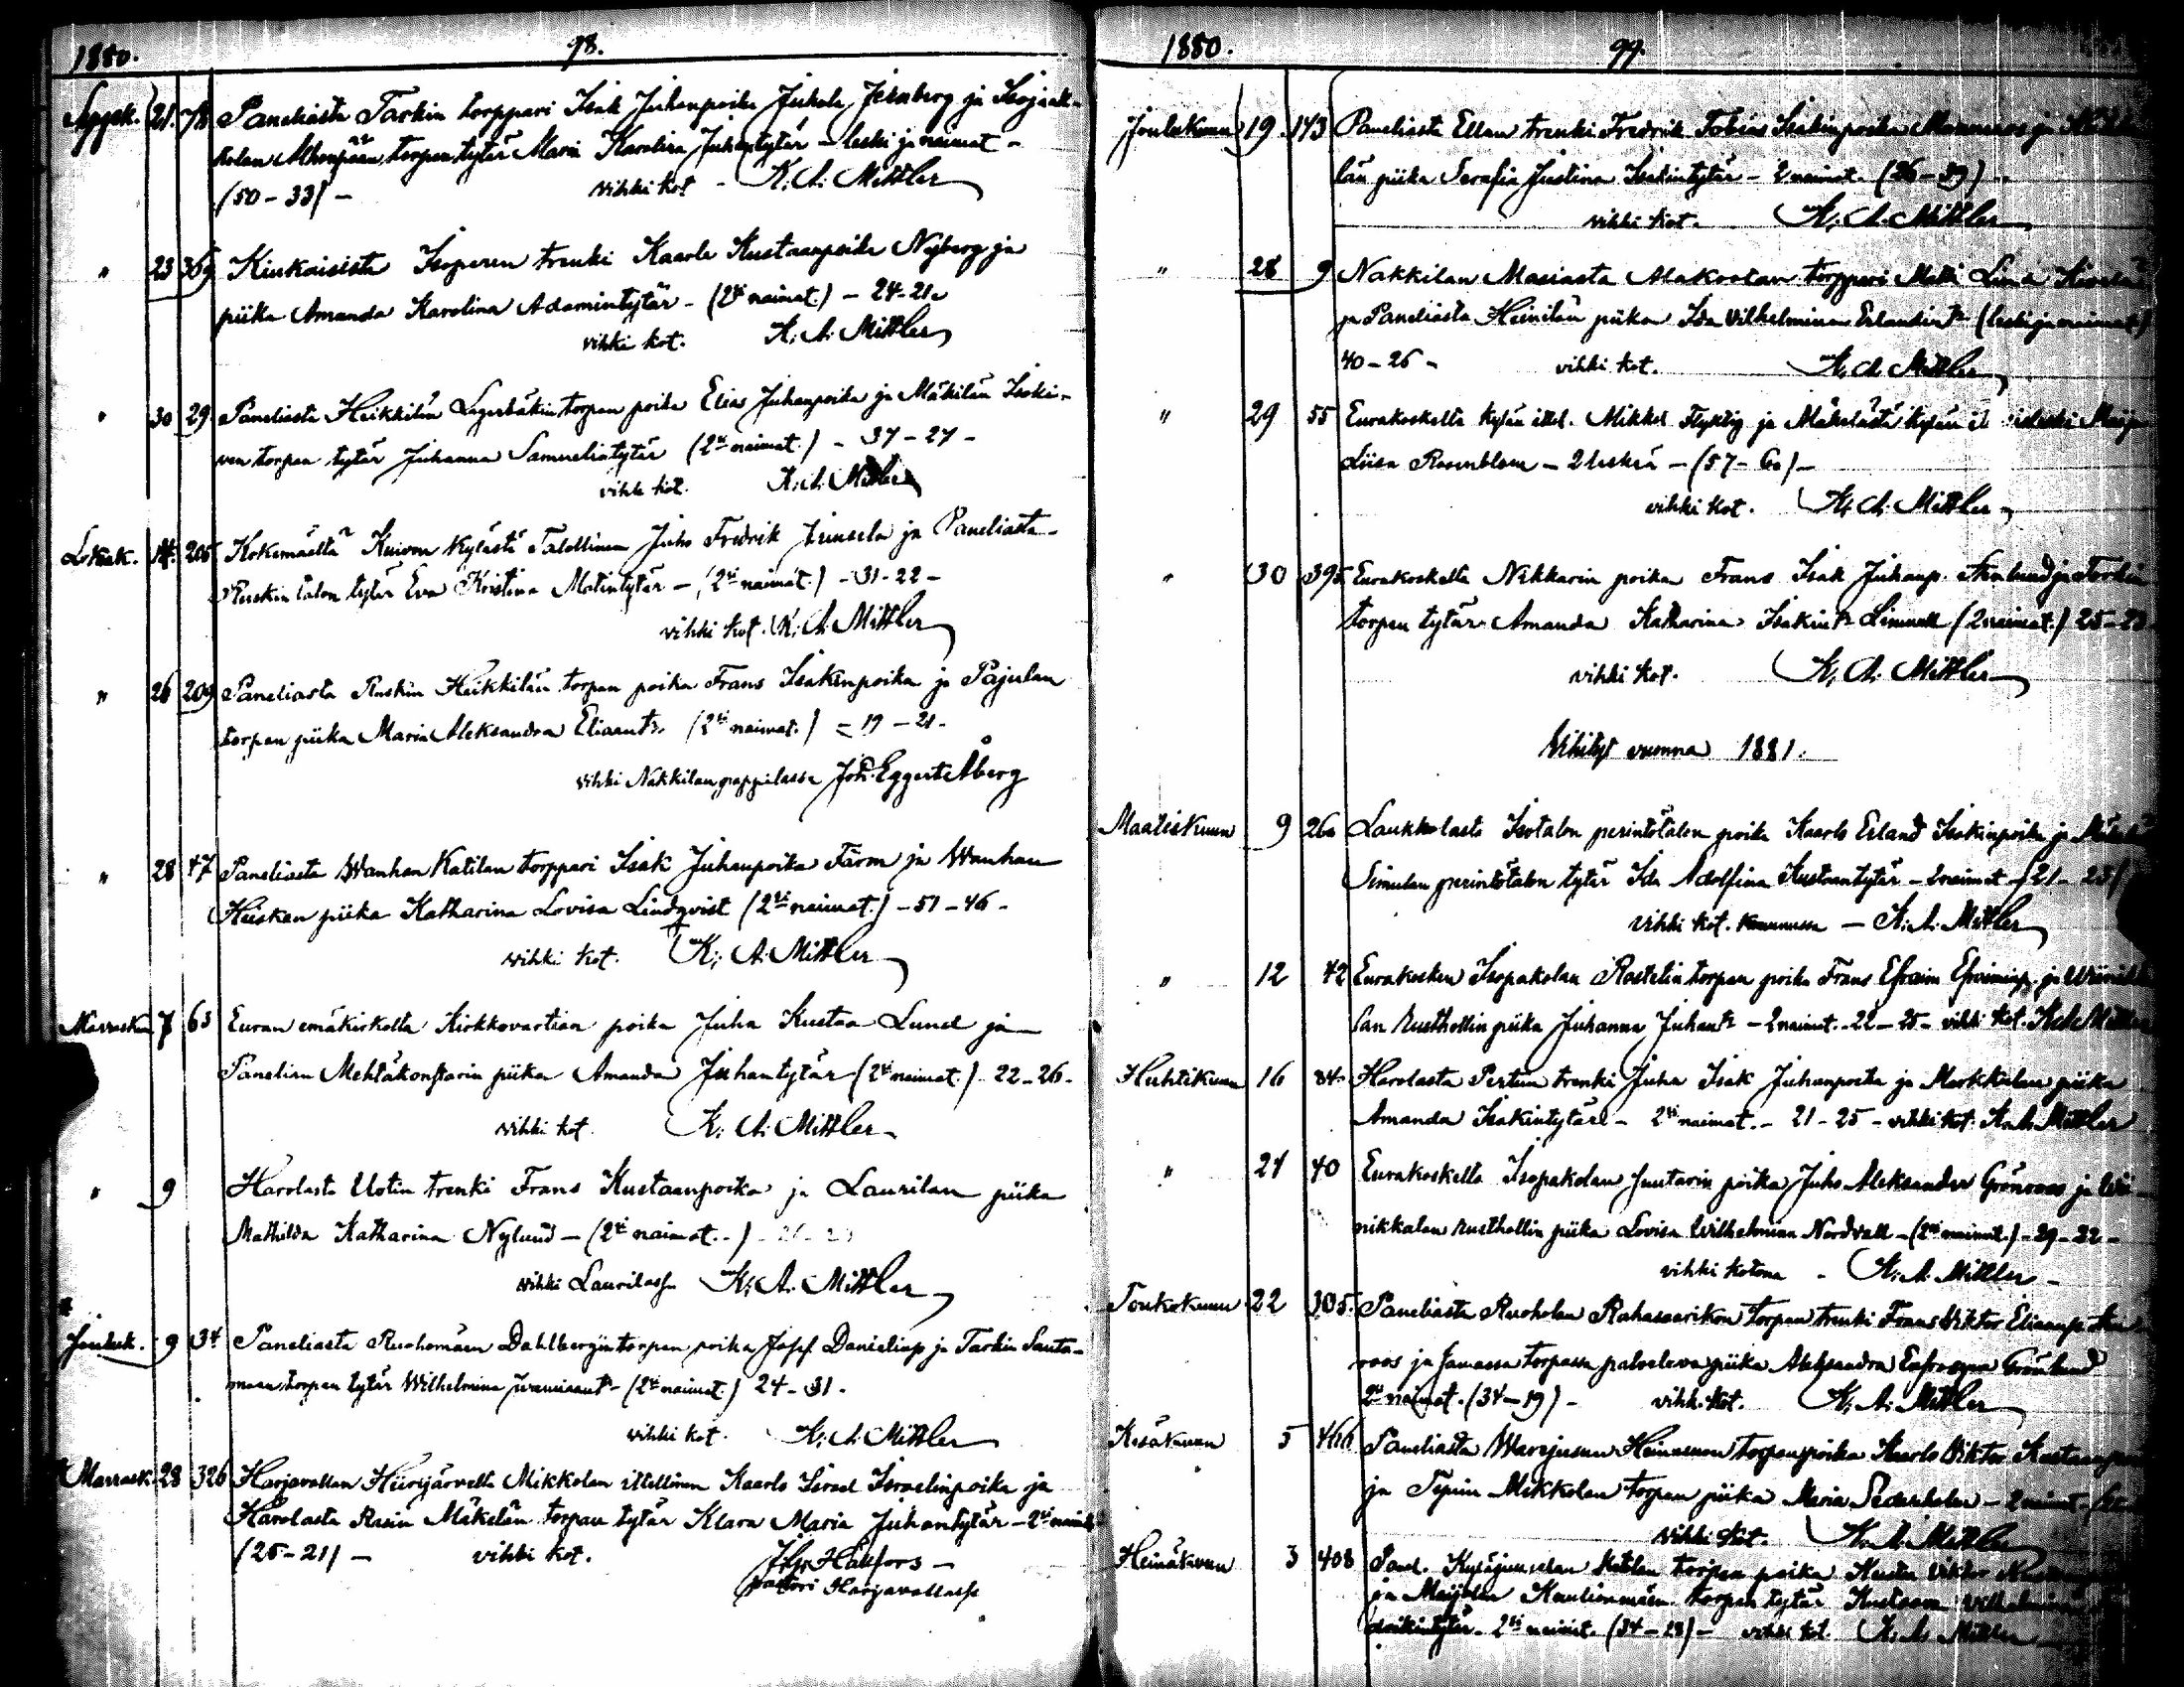 1880. 98.
Syysk. 21. 78 Paneliasta Tarkin torppari Isak Juhanpoika Juhola Jernberg ja Isojaak-
kolan torpan tytär Maria Karolina Juhantytär – leski ja naimat –
(50–33) – vihki kot – K. A. Mittler
" 23 369 Kiukaisista Isoperen trenki Kaarle Kustaanpoika Nyberg ja
piika Amanda Karolina Adamintytär – (2si naimat.) – 24–21.
vihki kot. K. A. Mittler
" 30 29. Paneliasta Heikkilän Lagerbäkin torpan poika Elias Juhanpoika ja Mäkilän
torpan tytär Juhanna Samuelintytär (2si naimat.) – 37–27 –
vihki kot. K. A. Mittler
Lokak. 14. 205 Kokemäeltä Kuivon kylästä Talollinen Juho Fredrik ja Paneliasta
Ruskin talon tytär Eva Kristina Matintytär – (2si naimat.) – 31–22 –
vihki kot. K. A. Mittler
" 26 209 Paneliasta Ruskin Heikkilän torpan poika Frans Isakinpoika ja Pajulan
torpan piika Maria Aleksandra Eliaantr. (2si naimat.) – 19–21 –
vihki Nakkilan pappilassa Joh. Eggert Åberg
" 28 47 Paneliasta Wanhan Katilan torppari Isak Juhanpoika Färm ja Wanhan
Heiskan piika Katharina Lovisa Lindqvist (2si naimat.) – 51–46 –
vihki kot. K. A. Mittler
Marrask. 7 63 Euran emäkirkolta Kirkkovartian poika Juha Kustaa Lund ja
Panelian Mehtäkonstarin piika Amanda Juhantytär (2si naimat.) 22–26 –
vihki kot. K. A. Mittler
" 9 Harolasta Uotin trenki Frans Kustaanpoika ja Laurilan piika
Mathilda Katharina Nylund – (2si naimat.)
vihki Laurilassa K. A. Mittler
Jouluk. 9 34 Paneliasta Ruohomäen Dahlbergin torpan poika Josef Danielinp ja Tarkin Santa-
maan torpan tytär Wilhelmina (2si naimat.) 24–31.
vihki kot. K. A. Mittler
Marrask. 28 326 Harjavallan Hiirijärvelta Mikkolan ittellinen Kaarlo Israel Israelinpoika ja
Harolasta Rasin Mäkelän torpan tytär Klara Maria Juhantytär – 2si naimat
(25–21) – vihki kot. Hällfors –
pastori Harjavallassa
1880. 99.
Joulukuun 19. 143 Paneliasta Ellan trenki Fredrik Tobias Isakinpoika ja
län piika Serafia Justina Isakintytär – 2 naimat. (26–39) –
vihki kot. K. A. Mittler
" 28 9 Nakkilan Masiasta Alakoolan torppari Matti
ja Paneliasta Heinilän piika Ida Vilhelmina Erlandintr (leski ja naimat)
40–26 – vihki kot. K. A. Mittler
" 29 55 Eurakoskelta kylän ittel. Mikkel Flyktig ja Mäkelästä kylän Maija
Liisa Rosenblom – 2 leskeä – (57–60) –
vihki kot. K. A. Mittler
" 30 395 Eurakoskelta Nikkarin poika Frans Isak Juhanp. ja Tarkin
torpan tytär Amanda Katharina Isakintr (2 naimat.) 25–23
vihki kot. K. A. Mittler
Vihityt vuonna 1881.
Maaliskuun 9 260 Laukkolasta Isotalon perintötalon poika Kaarlo Erland Isakinpoika ja
Simulan perintötalon tytär Ida Adolfina Kustaantytär – 2 naimat – (21–25)
vihki kot. K. A. Mittler
" 12 42 Eurakosken Isopakolan Rostelin torpan poika Frans Efraim Efraiminp. ja
lan Rusthollin piika Juhanna Juhantr – 2 naimat. 22–25 – vihki kot. K. A. Mittler
Huhtikuun 16 84. Harolasta Perttun trenki Juha Isak Juhanpoika ja Markkulan piika
Amanda Isakintytär – 2si naimat. – 21–25 – vihki kot. K. A. Mittler
" 24 40 Eurakoskelta Isopakolan Juutarin poika Juho Aleksander Grönroos ja Wii-
nikkalan rusthollin piika Lovisa Wilhelmina Nordvall – (2si naimat.) – 29–22 –
vihki kotona – K. A. Mittler –
Toukokuun 22 305. Paneliasta Ruoholan Rahasaarikon torpan trenki Frans Viktor Eliaanp
roos ja samassa torpassa palveleva piika Aleksandra Eufrosyna Grönlund
2si naimat. (34–19) – vihki kot. K. A. Mittler
Kesäkuun 5 466 Paneliasta Heinosuon torpan poika Kaarlo Viktor
ja Tepun Mikkolan torpan piika Maria – 2 naimat.
vihki kot. K. A. Mittler
Heinäkuun 3 408 Panel. torpan poika Kusta Viktor
ja torpan tytär Kustaava Vilhelmina
2si naimat. (34–28) – vihki kot. K. A. Mittler